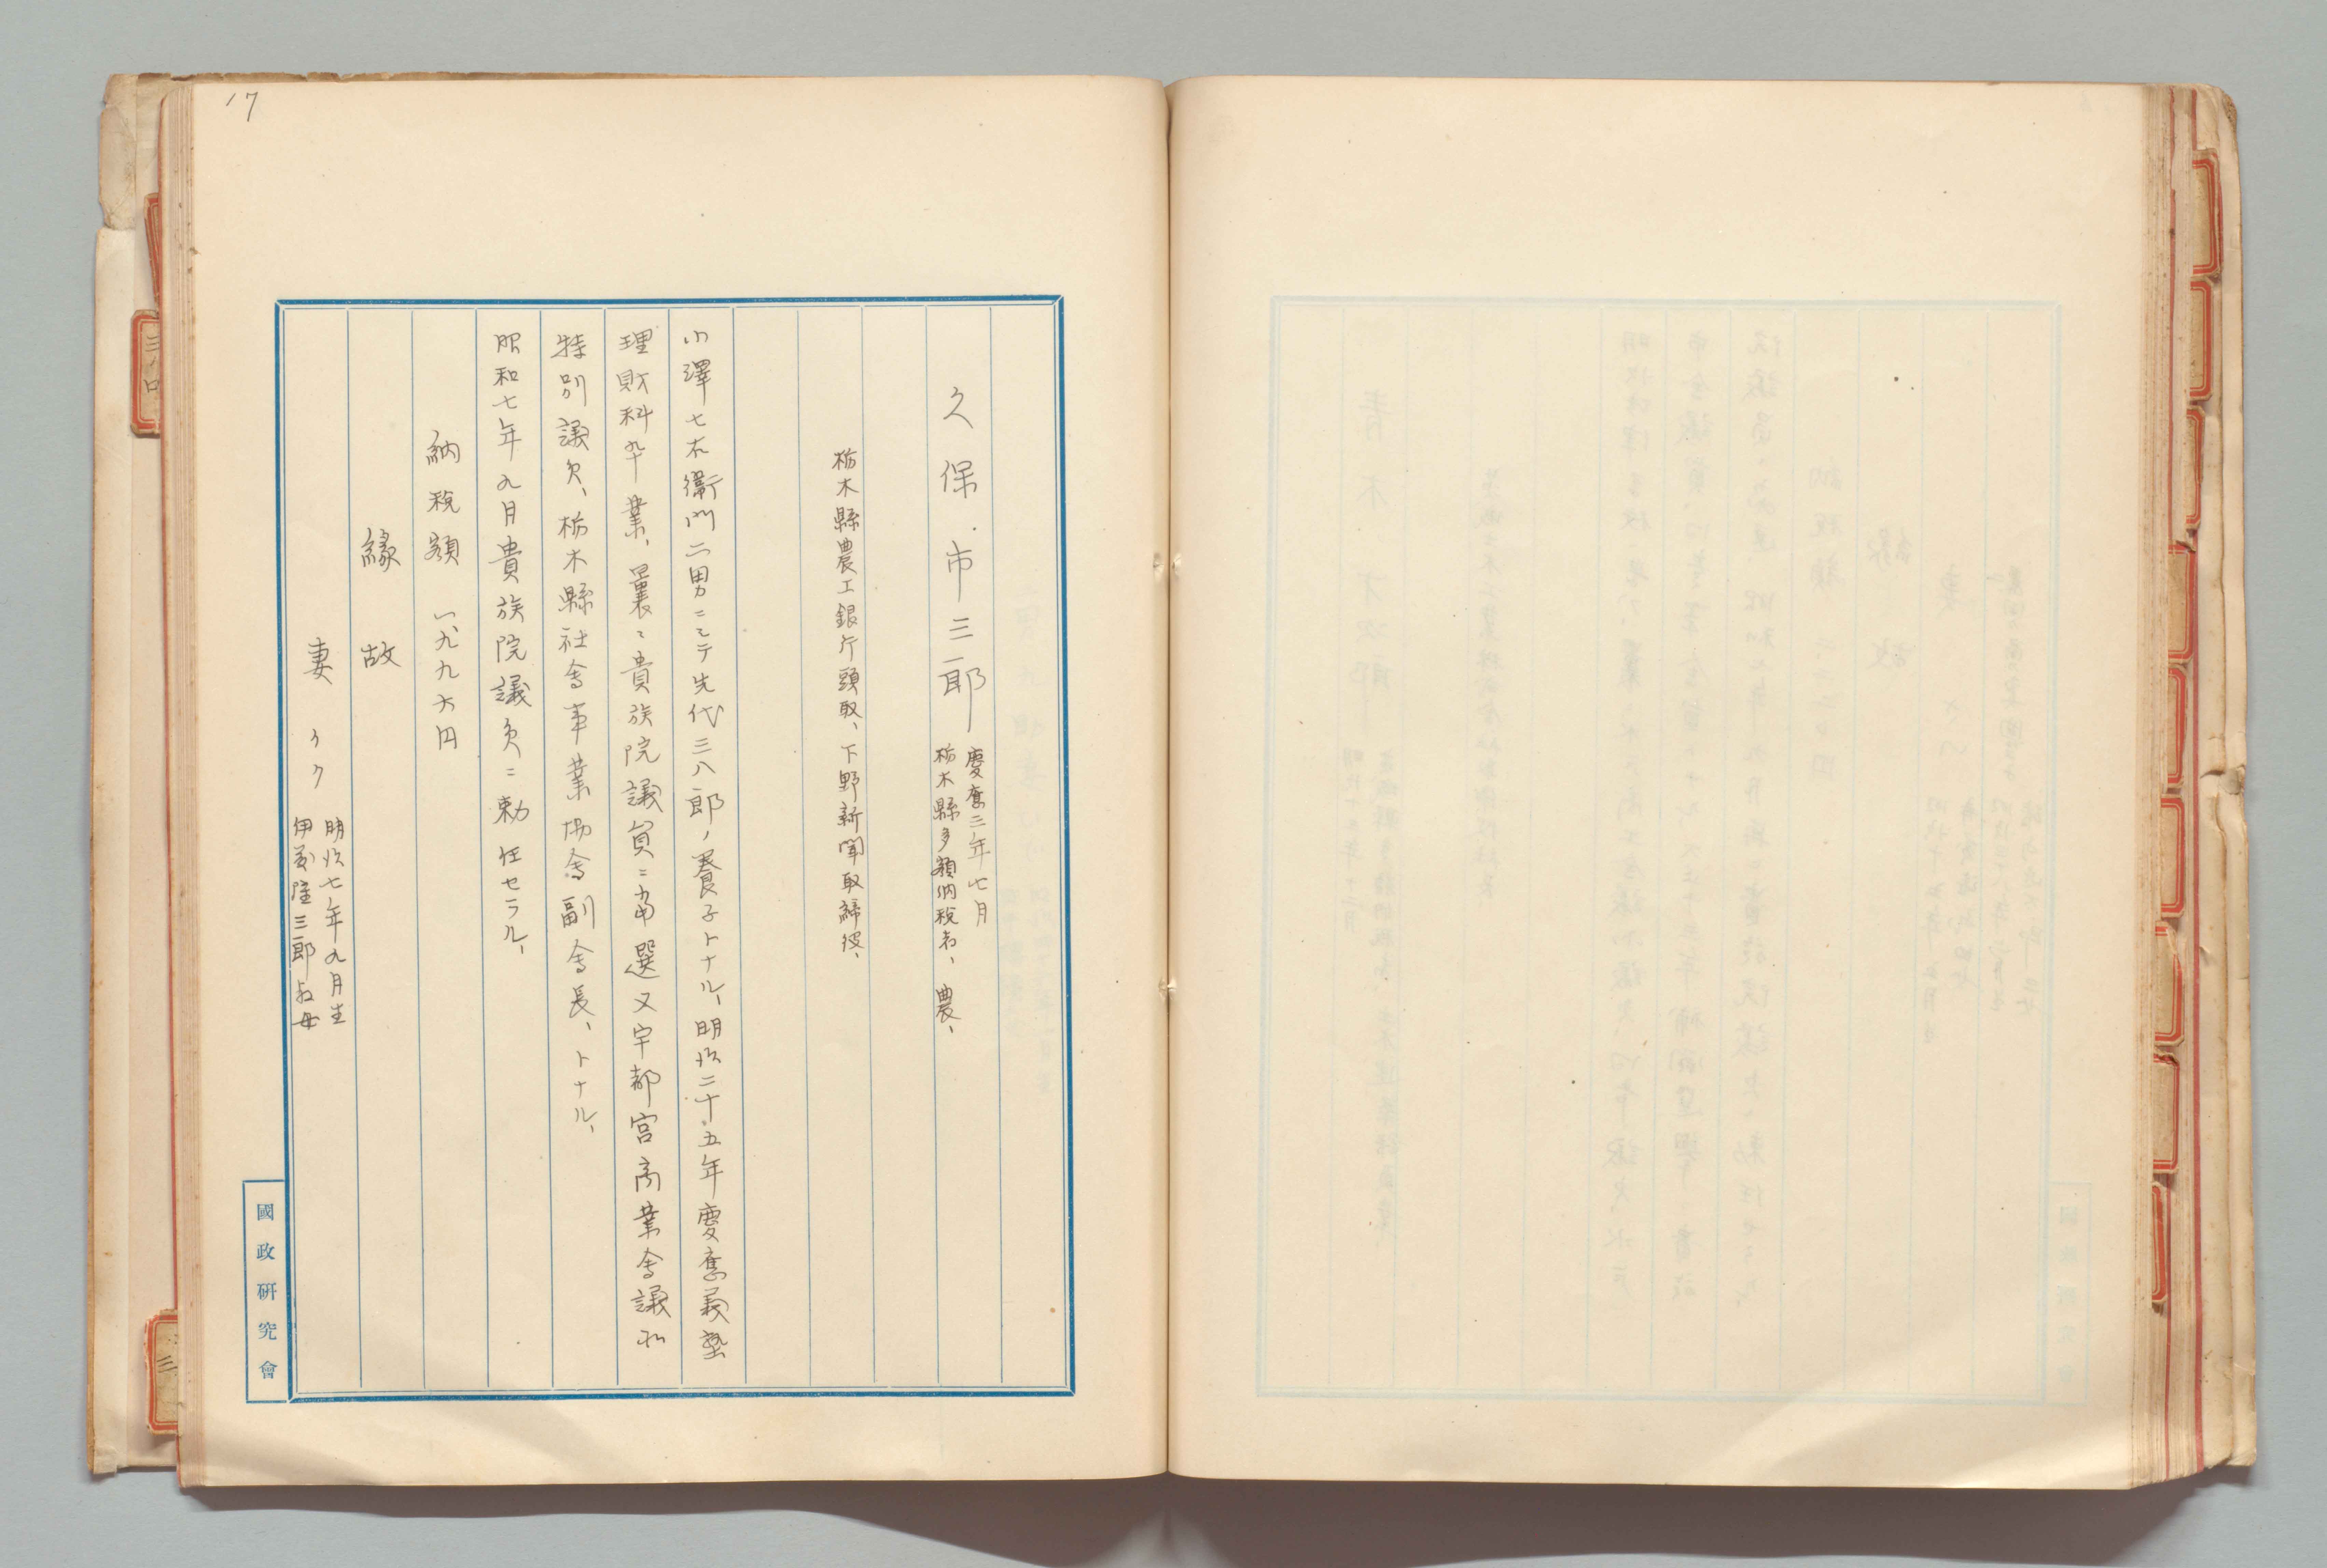 17
久保市三郎
慶應三年七月
栃木縣多額納税者、農、
栃木縣農工銀行頭取、下野新聞取締役、
小澤七右衞門二男ニシテ先代三八郎ノ養子トナル、明治二十五年慶應義塾
理財科卆業、曩ニ貴族院議員ニ當選又宇都宮商業會議所
特別議員、栃木縣社會事業協會副會長、トナル、
昭和七年九月貴族院議員ニ勅任セラル、
納税額 一、九九六円
緣故
妻 クク
明治七年九月生
伊藤隆三郎叔母
國政研究會